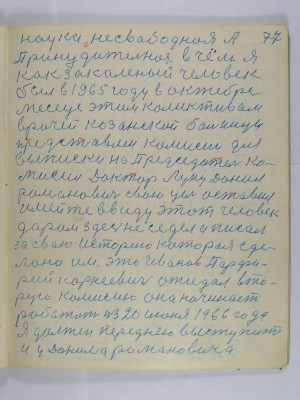 наука, несвабодная А 77
Принудителноя. в чём я
как закаленый человек
был в 1965 году в октебре
месеце этим коликтивам
врачей Козанской болницы
представлен комисии для
выписки но Председатель ко-
мисии Доктор Лунц Донил
романович свою цел оставил
имейте в виду этот человек
даром здесь не седел а писал
за сваю историю которая сде-
лоно им. это Иванов Парфи-
рий корнеевич ожидал вто-
рую комисию она начинает
работат из 20 июня 1966 года
я должен переднею выступит
и у Донила романовича